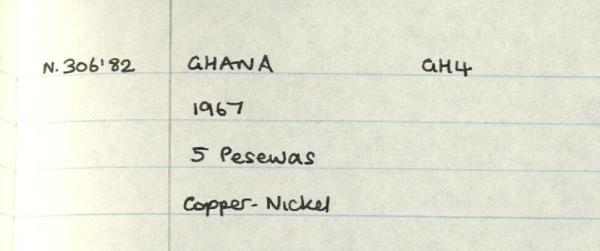 N.306'82 GHANA GH4
1967
5 Pesewas
Copper-Nickel